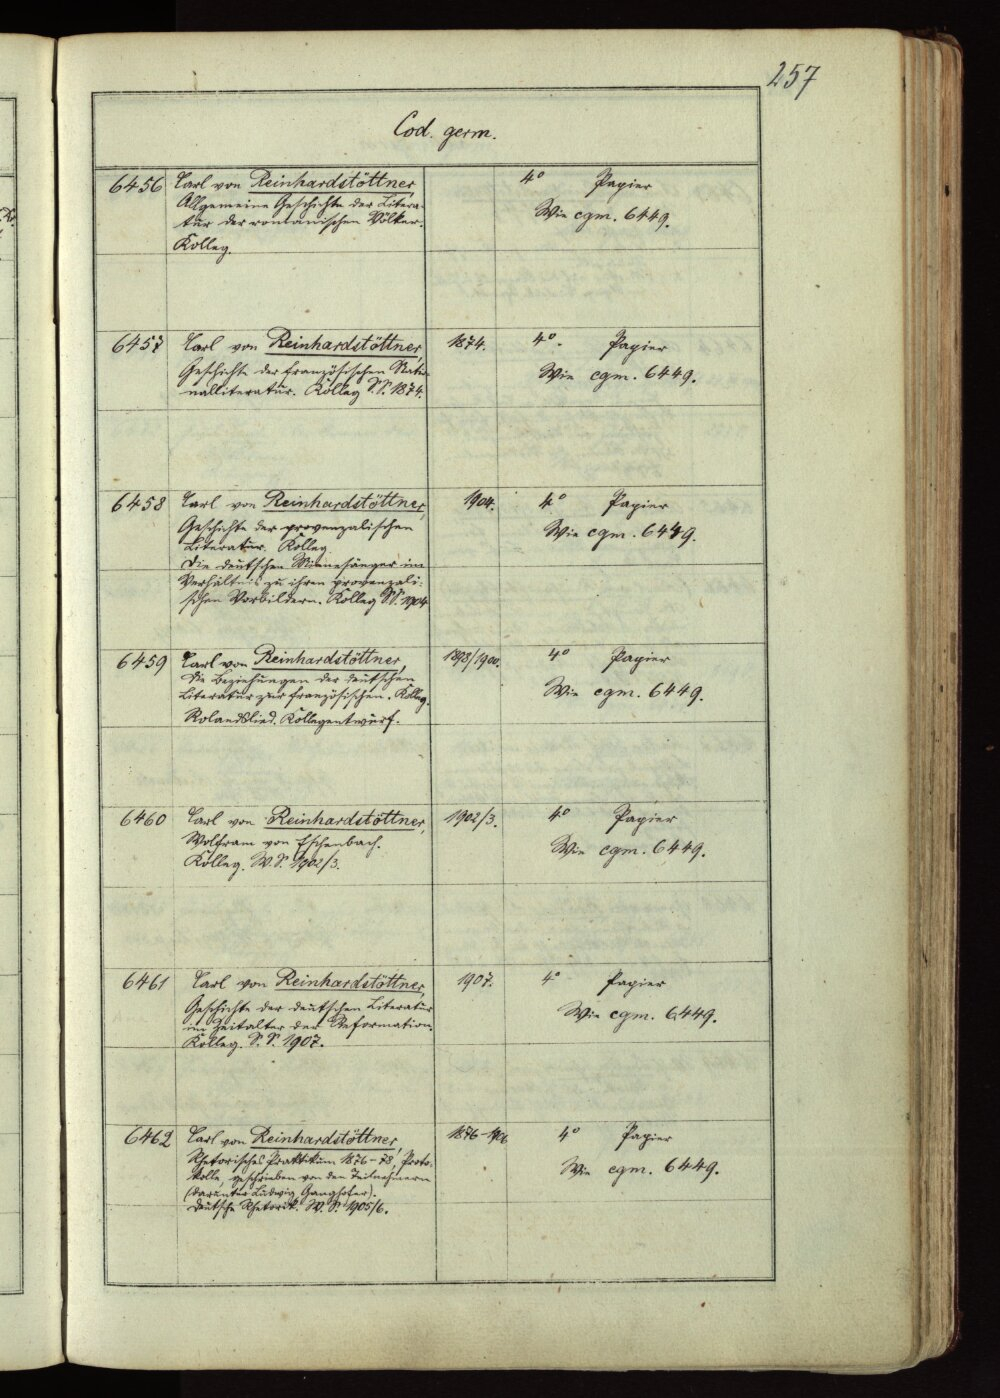 257
Cod. germ.
6456 Carl von Reinhardstöttner 4° Papier
Allgemeine Geschichte der Litera-
tur der romanischen Völker.
Kolleg.
Wie cgm. 6449.
6457 Carl von Reinhardstöttner, 1874. 4°. Papier
Geschichte der französischen Natio-
nalliteratur. Kolleg S.S. 1874.
Wie cgm. 6449.
6458 Carl von Reinhardstöttner, 1904. 4° Papier
Geschichte der provenzalischen
Literatur. Kolleg.
Die deutschen Minnesänger im
Verhältnis zu ihren provenzali-
schen Vorbildern. Kolleg S.S. 1904
Wie cgm. 6449.
6459 Carl von Reinhardstöttner, 1898/1900. 4° Papier
Die Beziehungen der deutschen
Literatur zur französischen. Kolleg.
Rolandslied. Kollegentwurf.
Wie cgm. 6449.
6460 Carl von Reinhardstöttner, 1902/3. 4° Papier
Wolfram von Eschenbach.
Kolleg. W.S. 1902/3.
Wie cgm. 6449.
6461 Carl von Reinhardstöttner, 1907. 4° Papier
Geschichte der deutschen Literatur
im Zeitalter der Reformation.
Kolleg. S.S. 1907.
Wie cgm. 6449.
6462 Carl von Reinhardstöttner, 1876- 4° Papier
Rhetorisches Praktikum 1876-78, Proto-
kolle, geschrieben von den Teilnehmern
(darunter Ludwig Ganghofer).
Deutsche Rhetorik. W.S. 1905/6.
Wie cgm. 6449.